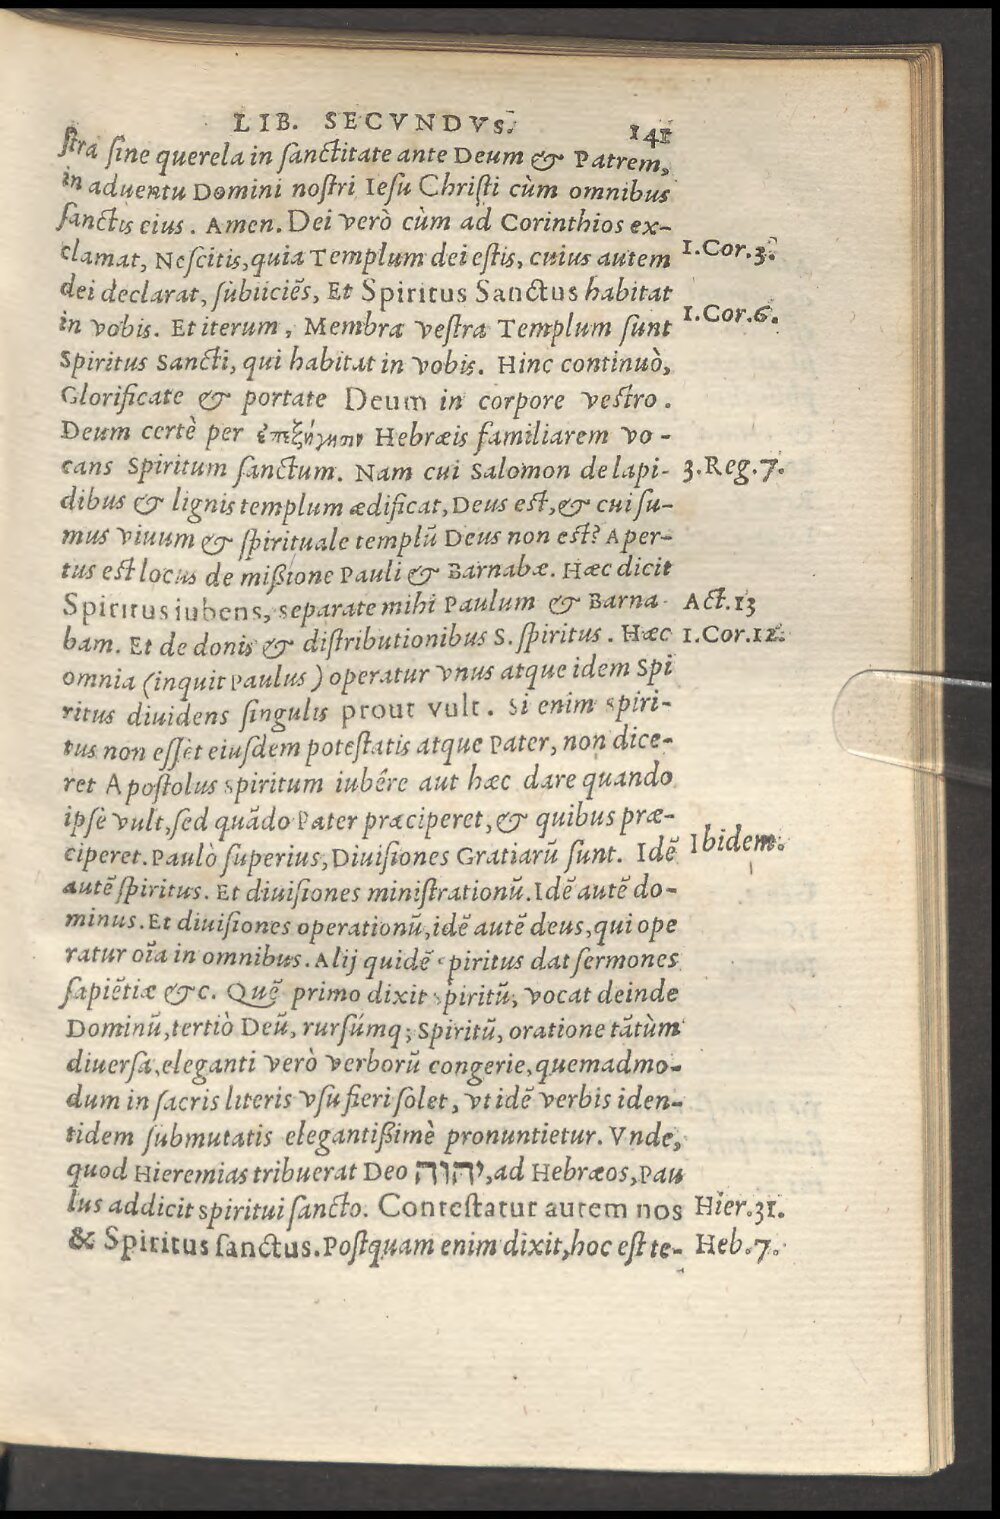 LIB. SECVNDVS. 141
ſtra ſine querela in ſanctitate ante Deum & Patrem,
in aduentu Domini noſtri Ieſu Chriſti cùm omnibus
ſanctis eius. Amen. Dei verò cùm ad Corinthios ex-
clamat, Neſcitis, quia Templum dei eſtis, cuius autem 1. Cor. 3.
dei declarat, ſubiiciẽs, Et Spiritus Sanctus habitat
in vobis. Et iterum, Membra veſtra Templum ſunt 1. Cor. 6.
Spiritus Sancti, qui habitat in vobis. Hinc continuò,
Glorificate & portate Deum in corpore veſtro.
Deum certè per ἐπεξήγησιν Hebræis familiarem vo-
cans Spiritum ſanctum. Nam cui Salomon de lapi- 3. Reg. 7.
dibus & lignis templum ædificat, Deus eſt, & cui ſu-
mus viuum & ſpirituale templũ Deus non eſt? Aper-
tus eſt locus de miſsione Pauli & Barnabæ. Hæc dicit
Spiritus iubens, separate mihi Paulum & Barna- Act. 13
bam. Et de donis & diſtributionibus S. ſpiritus. Hæc 1. Cor. 12.
omnia (inquit Paulus) operatur vnus atque idem Spi
ritus diuidens ſingulis prout vult. Si enim spiri-
tus non eſſet eiuſdem poteſtatis atque Pater, non dice-
ret Apoſtolus spiritum iubêre aut hæc dare quando
ipſe vult, ſed quãdo Pater præciperet, & quibus præ-
ciperet. Paulò ſuperius, Diuiſiones Gratiarũ ſunt. Idẽ Ibidem.
autẽ ſpiritus. Et diuiſiones miniſtrationũ. Idẽ autẽ do-
minus. Et diuiſiones operationũ, idẽ autẽ deus, qui ope
ratur oĩa in omnibus. Alij quidẽ spiritus dat ſermones
ſapiẽtiæ &c. Quẽ primo dixit spiritũ, vocat deinde
Dominũ, tertiò Deũ, rurſúmq; Spiritũ, oratione tãtùm
diuerſa, eleganti verò verborũ congerie, quemadmo-
dum in ſacris literis vſu fieri ſolet, vt idẽ verbis iden-
tidem ſubmutatis elegantiſsimè pronuntietur. Vnde,
quod Hieremias tribuerat Deo יהוה, ad Hebræos, Pau
lus addicit spiritui ſancto. Conteſtatur autem nos Hier. 31.
& Spiritus ſanctus. Poſtquam enim dixit, hoc eſt te- Heb. 7.